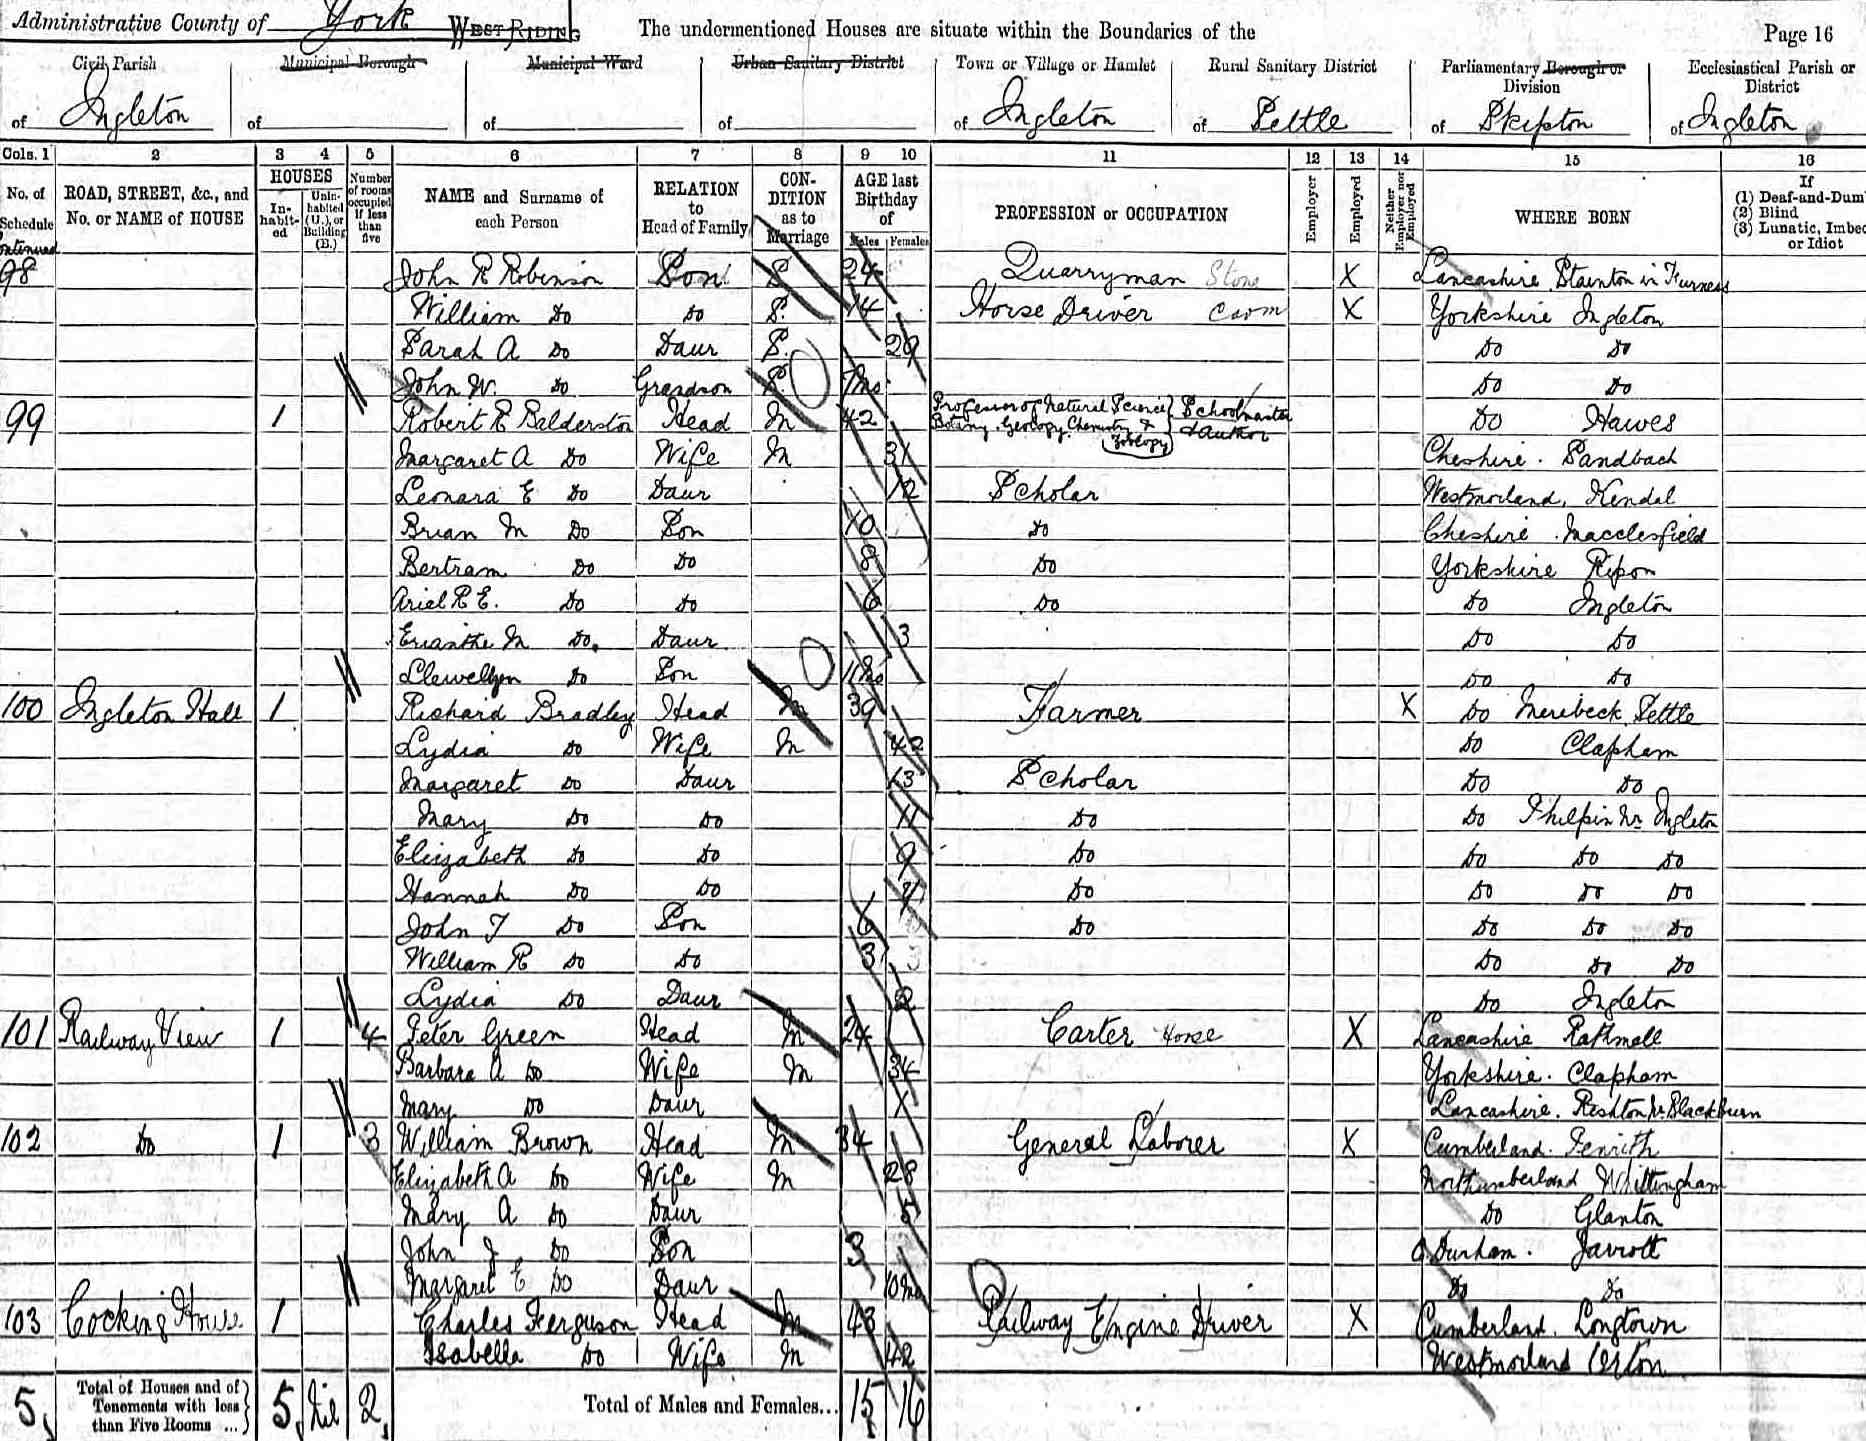 Administrative County of York WEST RIDING The undermentioned Houses are situate within the Boundaries of the Page 16
Civil Parish Municipal Borough Municipal Ward Urban Sanitary District Town or Village or Hamlet Rural Sanitary District Parliamentary Borough or Division Ecclesiastical Parish or District
of Ingleton of of of of Ingleton of Settle of Skipton of Ingleton
Cols. 1 2 3 4 5 6 7 8 9 10 11 12 13 14 15 16
No. of Schedule ROAD, STREET, &c., and No. or NAME of HOUSE HOUSES In-habit-ed Unin-habited (U.), or Building (B.) Number of rooms occupied if less than five NAME and Surname of each Person RELATION to Head of Family CON-DITION as to Marriage AGE last Birthday of Males Females PROFESSION or OCCUPATION Employer Employed Neither Employer nor Employed WHERE BORN If (1) Deaf-and-Dum (2) Blind (3) Lunatic, Imbec or Idiot
ontinued
98 John R Robinson Son S 24 Quarryman Stone X Lancashire Stainton in Furness
William Do Do S. 14 Horse Driver X Yorkshire Ingleton
Sarah A Do Daur S. 29 Do Do
John W. Do Grandson S. 7mo. Do Do
99 1 Robert R Balderston Head M 42 Professor of Natural Science Botany. Geology. Chemistry & Zoology } Schoolmaster & Author Do Hawes
Margaret A Do Wife M 31 Cheshire. Sandbach
Leonara E Do Daur 12 Scholar Westmorland, Kendal
Brian M Do Son 10 Do Cheshire. Macclesfield
Bertram Do Do 8 Do Yorkshire Ripon
Ariel R E. Do Do 6 Do Do Ingleton
Erianthe M Do. Daur 3 Do Do
Llewellyn Do Son 11mo Do Do
100 Ingleton Hall 1 Richard Bradley Head M 39 Farmer X Do Merebeck. Settle
Lydia Do Wife M 42 Do Clapham
Margaret Do Daur 13 Scholar Do Do
Mary Do Do 11 Do Do Philpin Nr Ingleton
Elizabeth Do Do 9 Do Do Do Do
Hannah Do Do Do Do Do Do
John T Do Son 6 Do Do Do Do
William R Do Do 3 Do Do Do
Lydia Do Daur 2 Do Ingleton
101 Railway View 1 4 Peter Green Head M 24 Carter Horse X Lancashire Rathmell
Barbara A Do Wife M 34 Yorkshire. Clapham
Mary Do Daur 1 Lancashire. Rishton Nr. Blackburn
102 Do 1 3 William Brown Head M 34 General Laborer X Cumberland. Penrith
Elizabeth A Do Wife M 28 Northumberland Whittingham
Mary A Do Daur 5 Do Glanton
John J Do Son 3 Durham. Jarrott
Margaret E Do Daur 10mo Do Do
103 Cocking House 1 Charles Ferguson Head M 43 Railway Engine Driver X Cumberland. Longtown
Isabella Do Wife M 42 Westmorland Orton
5 Total of Houses and of Tenements with less than Five Rooms ... } 5 Nil 2 Total of Males and Females... 15 16